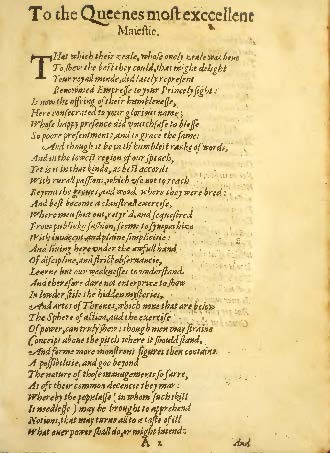 To the Queenes most exccellent
Maiestie.
THat which their zeale, whose onely zeale was bent
To shew the best they could, that might delight
Your royall minde, did lately represent
Renowned Empresse to your Princely sight:
Is now the offring of their humblenesse,
Here consecrated to your glorious name;
Whose happy presence did vouchsafe to blesse
So poore presentments, and to grace the same:
And though it be in th'humblest ranke of words,
And in the lowest region of our speach,
Yet is it in that kinde, as best accords
With rurall passions, which vse not to reach
Beyond the groues, and woods, where they were bred:
And best become a claustrall exercise,
Where men shut out, retyr'd, and sequestred
From publicke fashion, seeme to sympathize
With innocent, and plaine simplicitie:
And liuing here vnder the awfull hand
Of discipline, and strict obseruancie,
Learne but our weaknesses to vnderstand,
And therefore dare not enterprize to show
In lowder stile the hidden mysteries,
And artes of Thrones, which none that are below
The Sphere of action, and the exercise
Of power, can truely shew: though men may straine
Conceipt aboue the pitch where it should stand,
And forme more monstrous figures then containe
A possibilitie, and goe beyond
The nature of those managements so farre,
As oft their common decencie they marre:
Whereby the populasse (in whom such skill
Is needlesse) may be brought to apprehend
Notions, that may turne all to a taste of ill
What euer power shall do, or might intend:
A 2 And